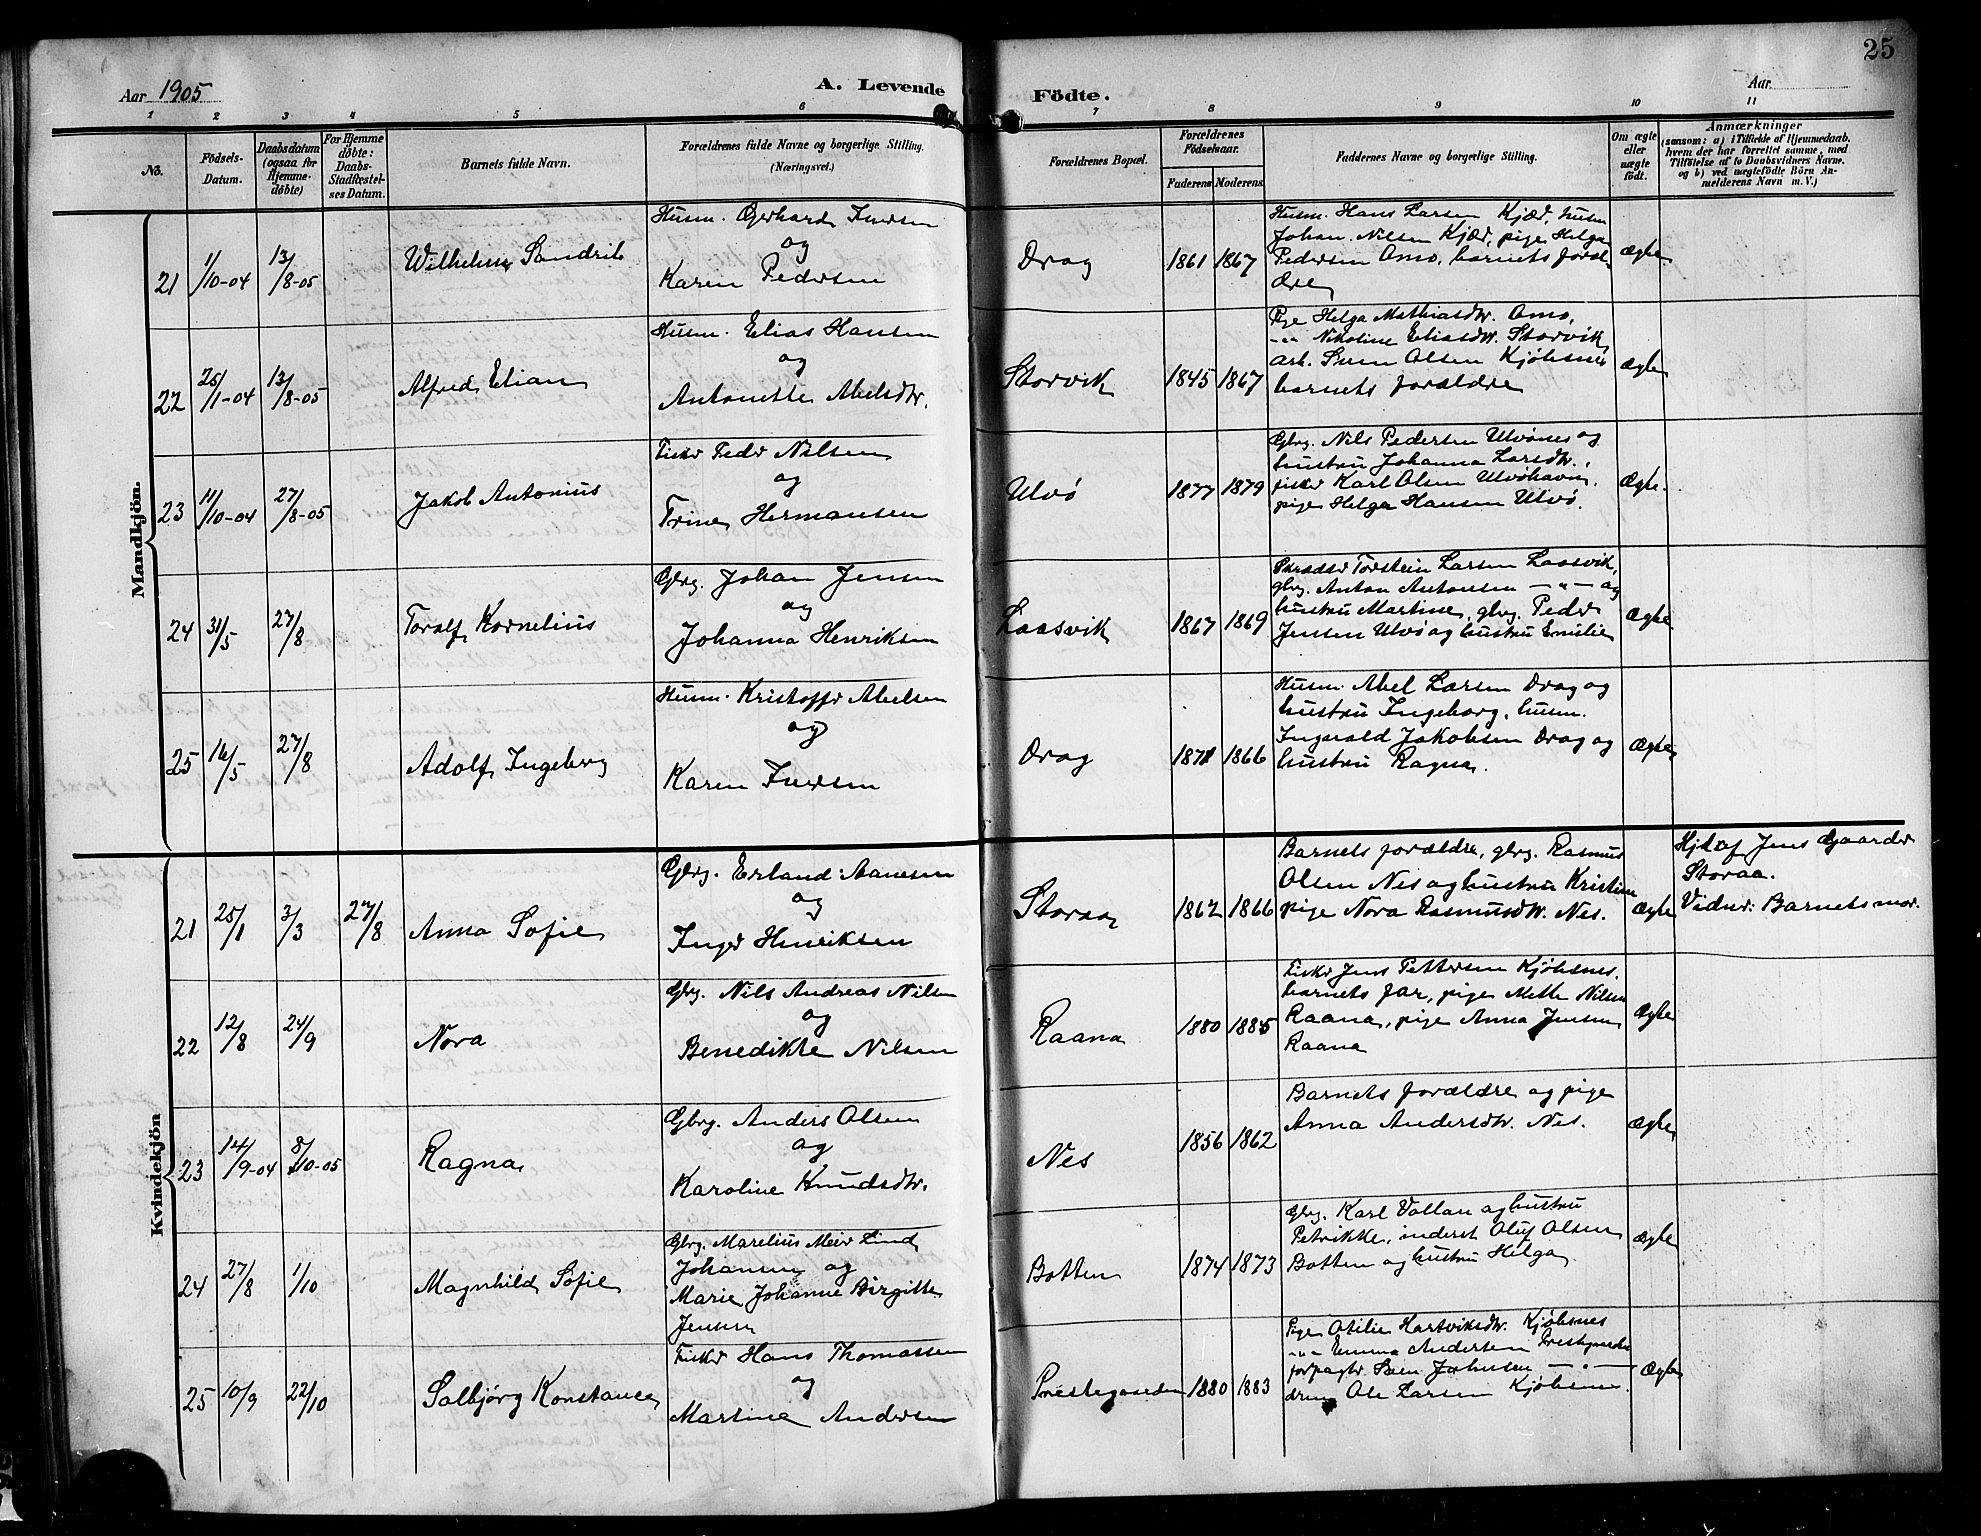 25
Aar 1905 A. Levende Födte. Aar
1 2 3 4 5 6 7 8 9 10 11
No.
Födsels-Datum.
Daabsdatum (ogsaa for Hjemme-döbte)
For Hjemme döbte: Daabs-Stadfæstel-ses Datum.
Barnets fulde Navn.
Forældrenes fulde Navne og borgerlige Stilling.
(Næringsvei.)
Forældrenes Bopæl.
Forældrenes Födselsaar.
Faderens Moderens
Faddernes Navne og borgerlige Stilling.
Om ægte eller uægte födt.
Anmærkninger
(saasom: a) i Tilfælde af Hjemmedaab.
hvem der har forrettet samme, med
Tilföielse af to Daabsvidners Navne.
og b) ved uægtefödte Börn An-
melderens Navn m. V.)
Mandkjön.
21 1/10-04 13/8-05 Wilhelm Sandrib
Husm. Gerhard Iversen
og
Karen Pedersen
Drag 1861 1867
Husm. Hans Larsen Kjær, husm
Johan Nilsen Kjær, pige Helga
Pedersen Amo, barnets foræl-
dre
Ægte
22 25/1-04 13/8-05 Alfred Elian
Husm. Elias Hansen
og
Antonette Abelsdtr.
Storvik 1845 1867
Pige Helga Mathiasdtr. Amo,
-"- Nikoline Eliasdtr. Storvik
arb. Sven Olsen Kjöbsnes
barnets forældre
Ægte
23 11/10-04 27/8-05 Jakob Antonius
Fisker Peder Nilsen
og
Trine Hermansen
Ulvö 1877 1879
Gbrg. Nils Pedersen Ulvönes og
hustru Johanna Larsdtr.,
fisker Karl Olsen Ulvöhavn,
pige Helga Hansen Ulvö.
Ægte.
24 31/5 27/8 Toralf Kornelius
Gbrg. Johan Jensen
og
Johanna Henriksen
Laasvik 1867 1869
Skrædder Torstein Larsen Laasvik,
gbrg. Anton Antonsen -"- og
hustru Martine, gbrg. Peder
Jensen Ulvö og hustru Emilie
Ægte
25 16/5 27/8 Adolf Ingeberg
Husm. Kristoffer Abelsen
og
Karen Iversen
Drag 1871 1866
Husm. Abel Larsen Drag og
hustru Ingeborg, husm.
Ingvald Jakobsen Drag og
hustru Ragna.
Ægte
Kvindekjön
21 25/1 3/3 27/8 Anna Sofie
Gbrg. Erland Aanesen
og
Inger Henriksen
Storaa 1862 1866
Barnets forældre, gbrg. Rasmus
Olsen Nes og hustru Kristine
pige Nora Rasmusdtr. Nes.
Ægte
Hjd. af Jens Gaarder
Storaa.
Vidner: Barnets mor.
22 12/8 24/9 Nora
Gbrg. Nils Andreas Nilsen
og
Benedikte Nilsen
Raana 1880 1885
Fisker Jens Pettersen Kjöbsnes.
barnets far, pige Mette Nilsen
Raana, pige Anna Jensen
Raana
Ægte
23 14/9-04 8/10-05 Ragna
Gbrg. Anders Olsen
og
Karoline Knudsdtr.
Nes 1856 1862
Barnets forældre og pige
Anna Andersdtr. Nes.
Ægte
24 27/8 1/10 Magnhild Sofie
Gbrg. Marelius Meier Lind
Johansen og
Marie Johanne Birgitte
Jensen
Botten 1874 1873
Gbrg. Karl Vollan og hustru
Petrikke, inderst Oluf Olsen
Botten og hustru Helga
Ægte
25 10/9 22/10 Solbjörg Konstance
Fisker Hans Thomassen
og
Martine Andersen
Prestegaarden 1880 1883
Pige Otilie Hartviksdtr. Kjöbsnes
-"- Emma Andersen
forpagter Johnsen -"-
dreng Ole Larsen Kjöbsnes.
Ægte